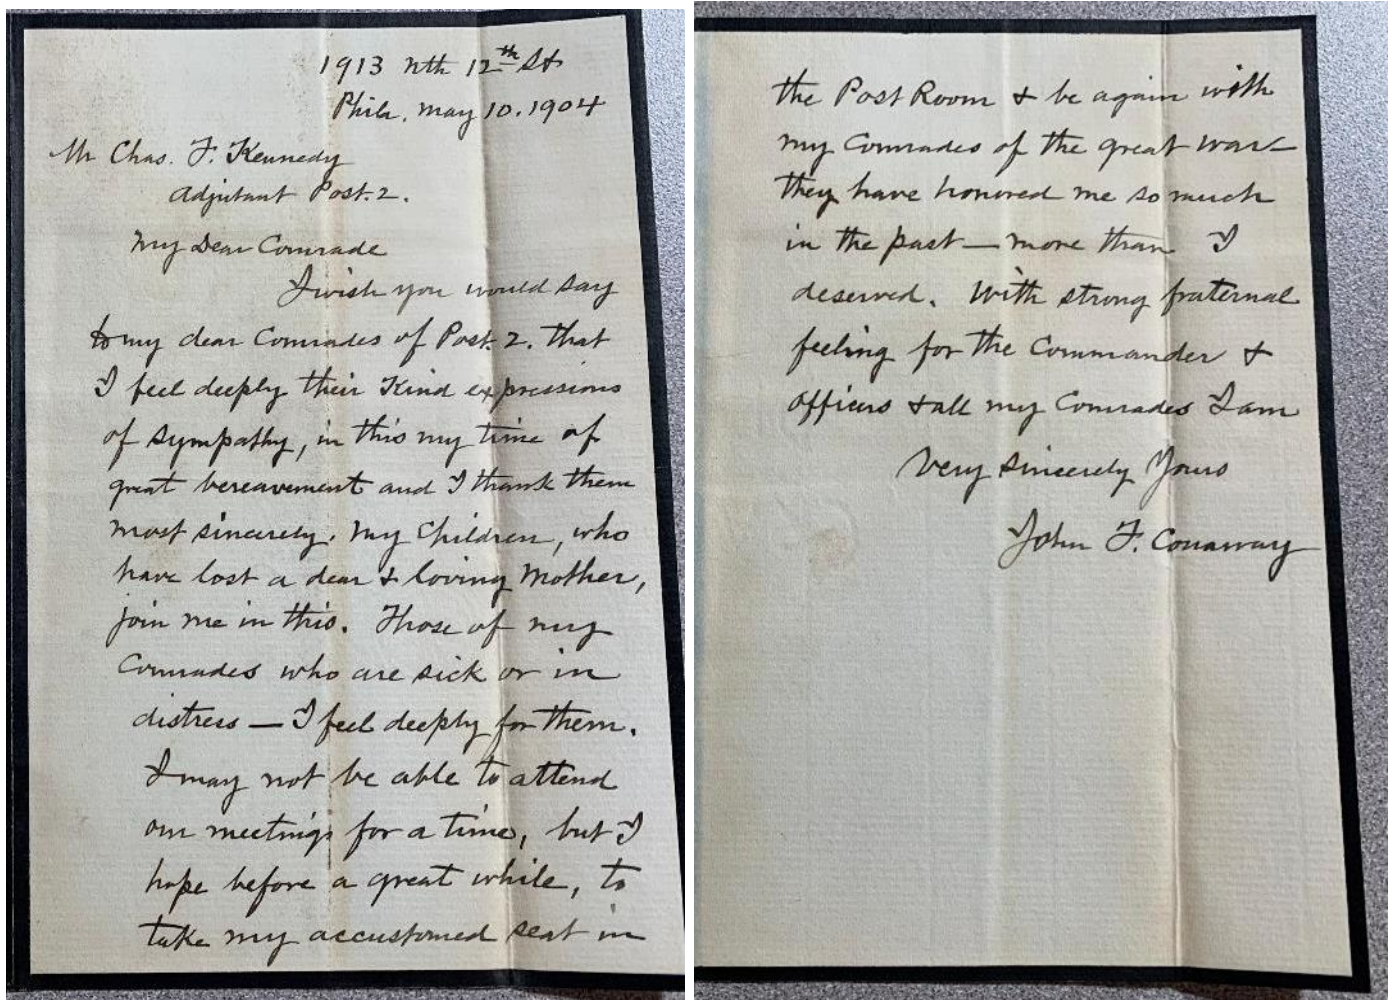 1913 Nth 12th St
Phila. May 10. 1904
Mr Chas. F. Kennedy
Adjutant Post. 2.
My Dear Comrade
I wish you would say
to my dear Comrades of Post. 2. that
I feel deeply their Kind expressions
of sympathy, in this my time of
great bereavement and I thank them
most sincerely. My Children, who
have lost a dear & loving Mother,
join me in this. Those of my
Comrades who are sick or in
distress — I feel deeply for them.
I may not be able to attend
our meetings for a time, but I
hope before a great while, to
take my accustomed seat in
the Post Room & be again with
my Comrades of the great war —
they have honored me so much
in the past — more than I
deserved. With strong fraternal
feeling for the Commander &
officers & all my Comrades I am
Very Sincerely Yours
John F. Conaway